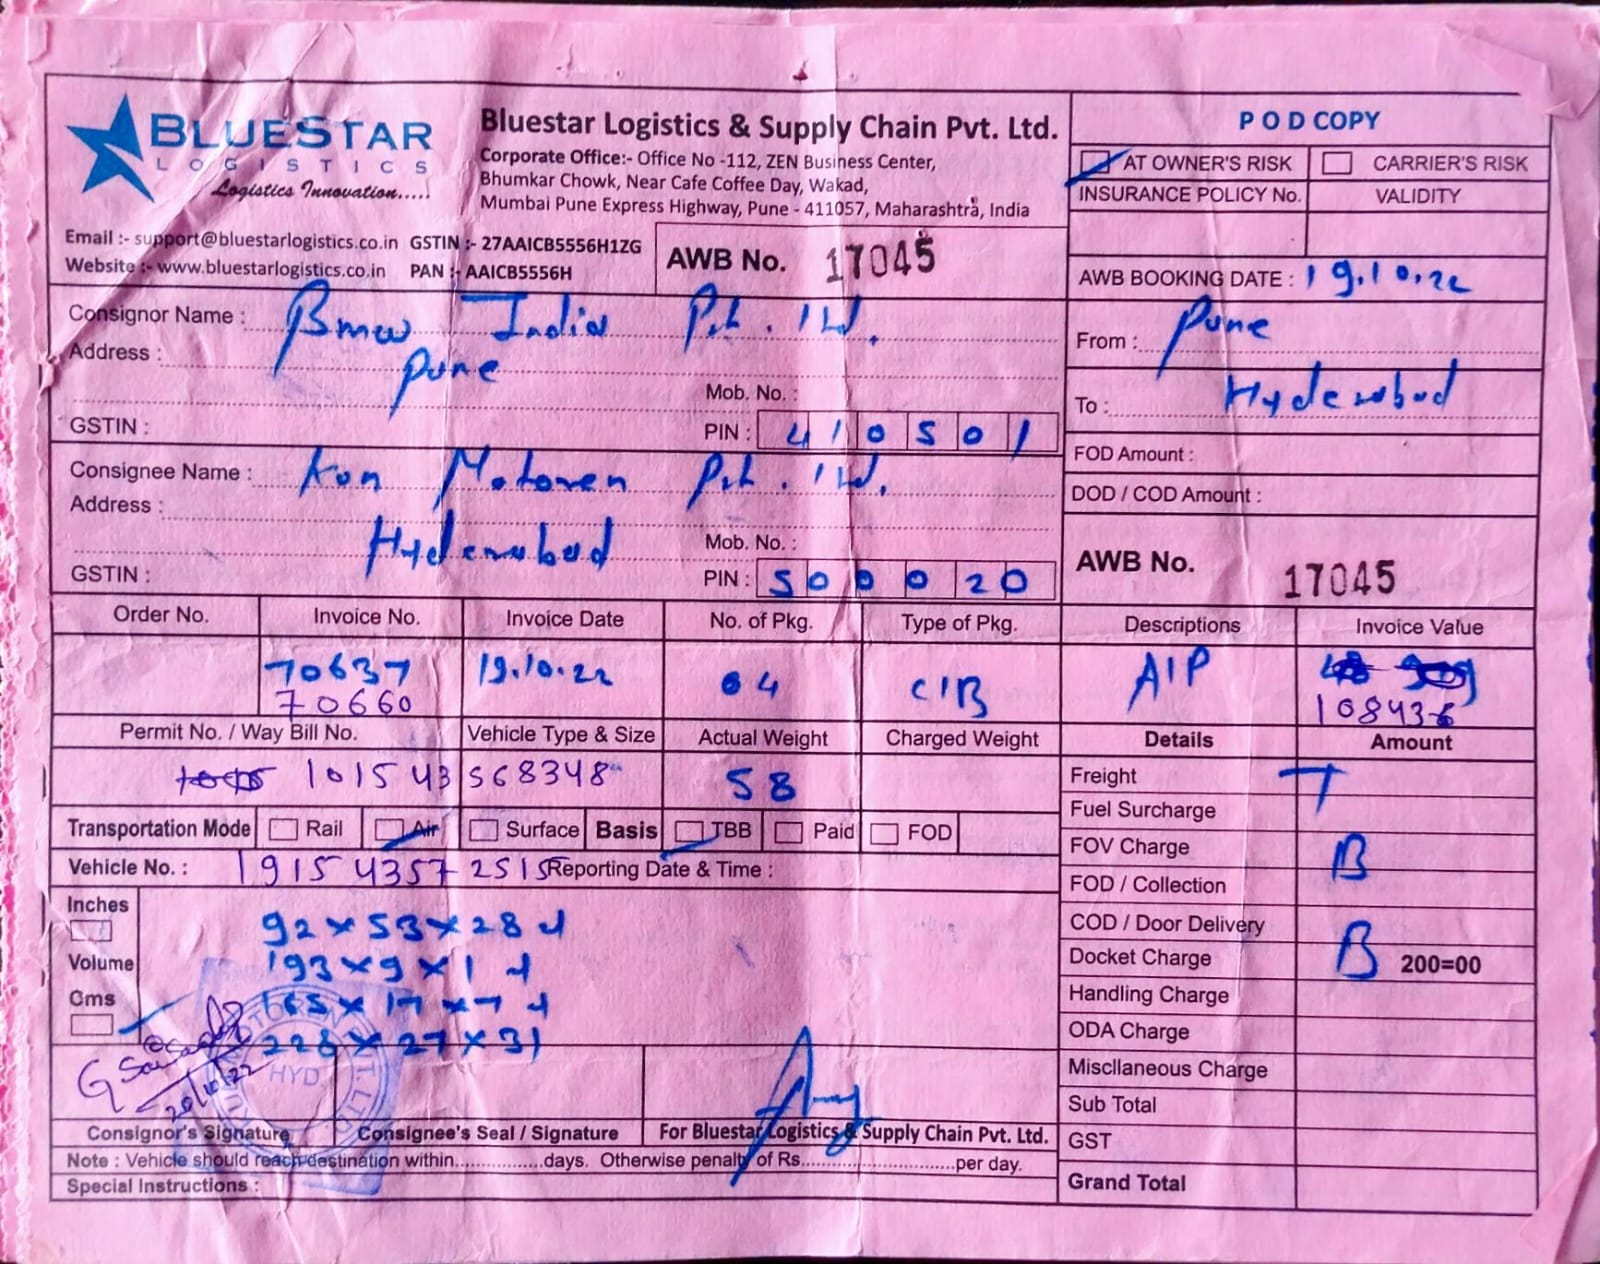 BLUESTAR
LOGISTICS
Logistics Innovation.....
Bluestar Logistics & Supply Chain Pvt. Ltd.
Corporate Office:- Office No -112, ZEN Business Center,
Bhumkar Chowk, Near Cafe Coffee Day, Wakad,
Mumbai Pune Express Highway, Pune - 411057, Maharashtra, India
Email :- support@bluestarlogistics.co.in GSTIN :- 27AAICB5556H1ZG
Website :- www.bluestarlogistics.co.in PAN :- AAICB5556H
AWB No. 17045
POD COPY
AT OWNER'S RISK CARRIER'S RISK
INSURANCE POLICY No. VALIDITY
AWB BOOKING DATE : 19.10.22
Consignor Name : Bmw India Pvt. ltd.
Address : Pune
Mob. No. :
GSTIN : PIN : 410501
From : Pune
To : Hyderabad
FOD Amount :
DOD / COD Amount :
Consignee Name : Kun Motoren Pvt. ltd.
Address :
Hyderabad Mob. No. :
GSTIN : PIN : 500020
AWB No. 17045
Order No. Invoice No. Invoice Date No. of Pkg. Type of Pkg. Descriptions Invoice Value
70637 19.10.22 04 C/B A/P
70660 108436
Permit No. / Way Bill No. Vehicle Type & Size Actual Weight Charged Weight Details Amount
1015 43 568348 58
Freight T
Fuel Surcharge
Transportation Mode Rail Air Surface Basis TBB Paid FOD
FOV Charge B
Vehicle No. : 19154357 2515 Reporting Date & Time :
FOD / Collection
Inches 92 x 53 x 28 4
COD / Door Delivery B
Volume 193 x 9 x 1 4
Docket Charge 200=00
Cms 165 x 17 x 7 4
Handling Charge
228 x 27 x 31
ODA Charge
HYD.
20/10/22
Miscllaneous Charge
Sub Total
Consignor's Signature Consignee's Seal / Signature For Bluestar Logistics & Supply Chain Pvt. Ltd.
GST
Note : Vehicle should reach destination within................days. Otherwise penalty of Rs............................per day.
Special Instructions :
Grand Total